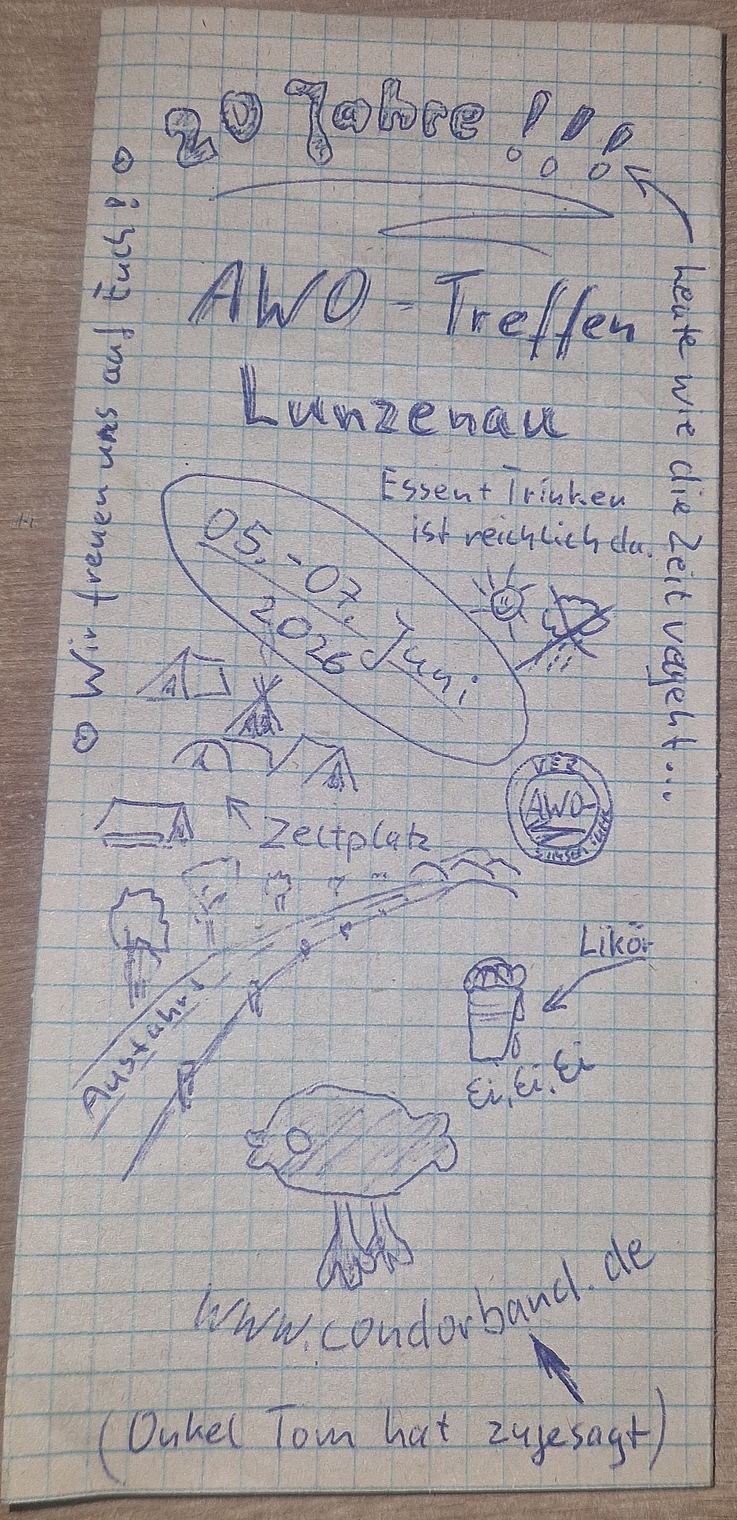 20 Jahre !!!
AWO-Treffen
Lunzenau
Heute wie die Zeit vergeht...
Wir freuen uns auf Euch!
Essen + Trinken
ist reichlich da.
05.-07. Juni
2026
VEZ
AWO
Zeltplatz
Ausfahrt
Likör
Ei, Ei, Ei
www.condorband.de
(Onkel Tom hat zugesagt)